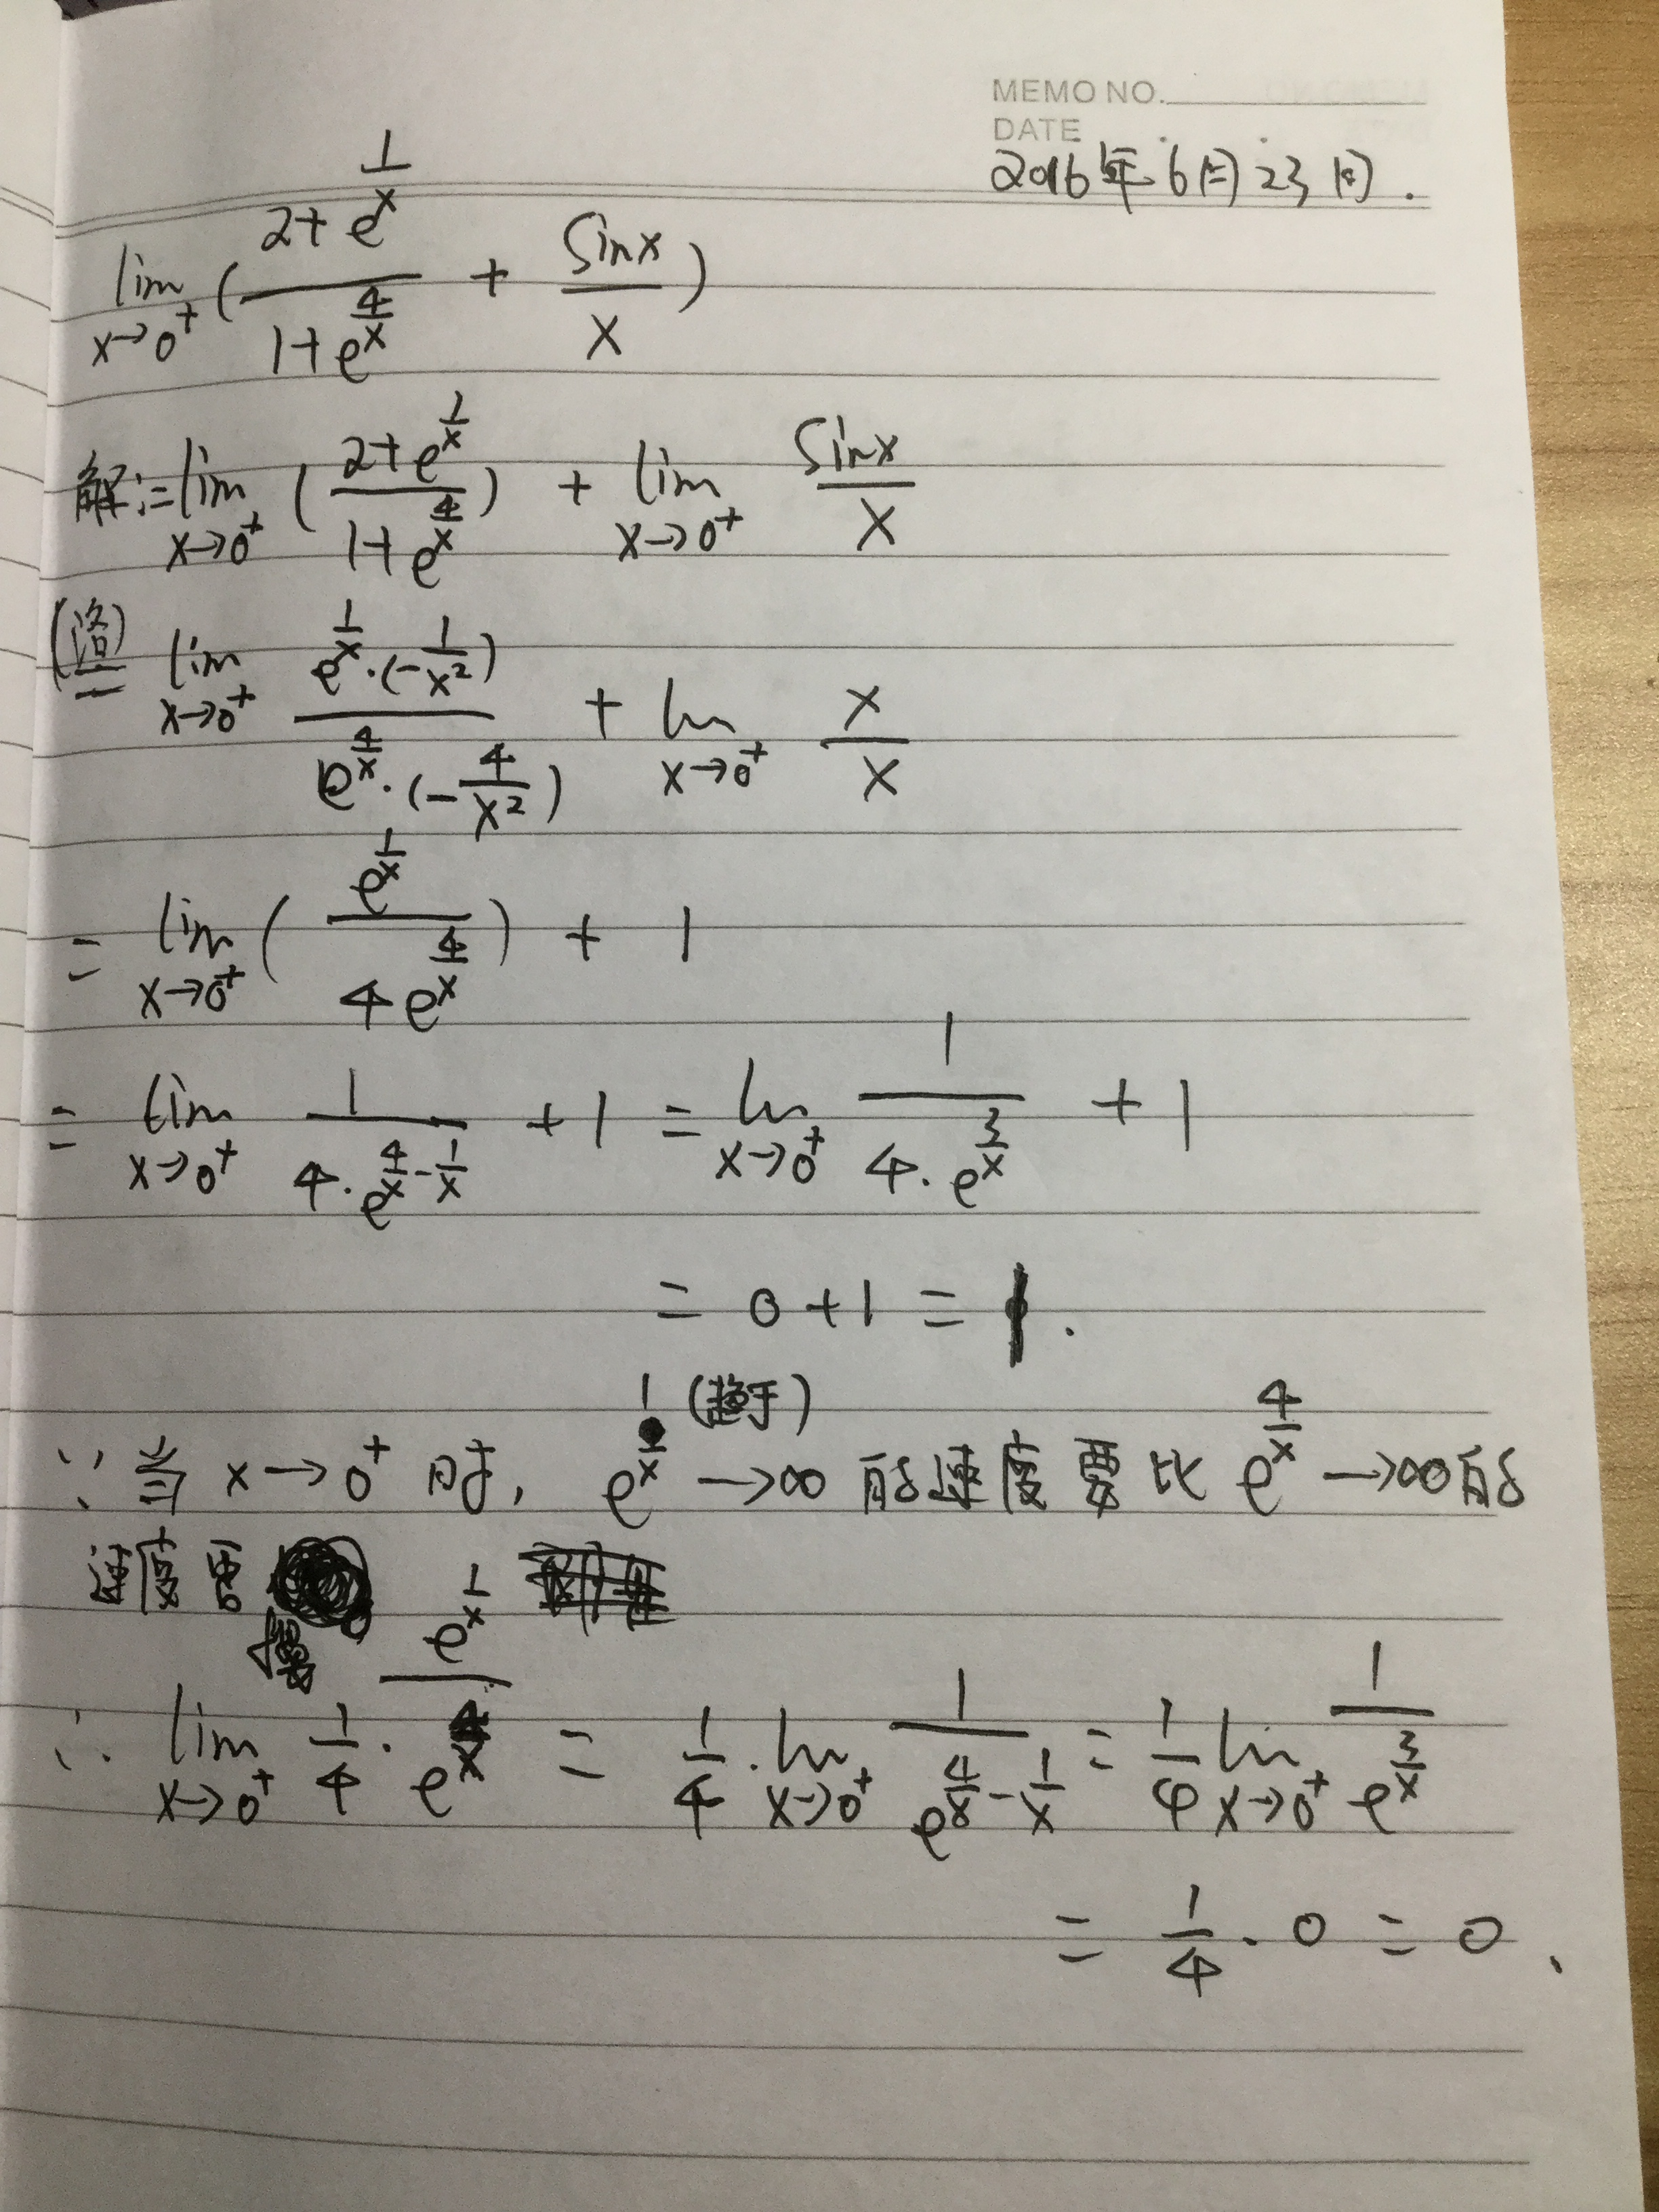 MEMO NO.
DATE
2016年6月23日.
lim x→0⁺ ( (2+e^(1/x)) / (1+e^(4/x)) + sinx/x )
解:=lim x→0⁺ ( (2+e^(1/x)) / (1+e^(4/x)) ) + lim x→0⁺ sinx/x
(洛) = lim x→0⁺ (e^(1/x)·(-1/x²)) / (e^(4/x)·(-4/x²)) + lim x→0⁺ x/x
= lim x→0⁺ ( e^(1/x) / 4e^(4/x) ) + 1
= lim x→0⁺ 1/(4·e^(4/x-1/x)) + 1 = lim x→0⁺ 1/(4·e^(3/x)) + 1
= 0+1 = 1.
(趋于)
∵当 x→0⁺ 时, e^(1/x) →∞ 的速度要比 e^(4/x) →∞的
速度要
慢
∴ lim x→0⁺ 1/4 · e^(1/x)/e^(4/x) = 1/4 · lim x→0⁺ 1/e^(4/x-1/x) = 1/4 lim x→0⁺ 1/e^(3/x)
= 1/4 · 0 = 0.